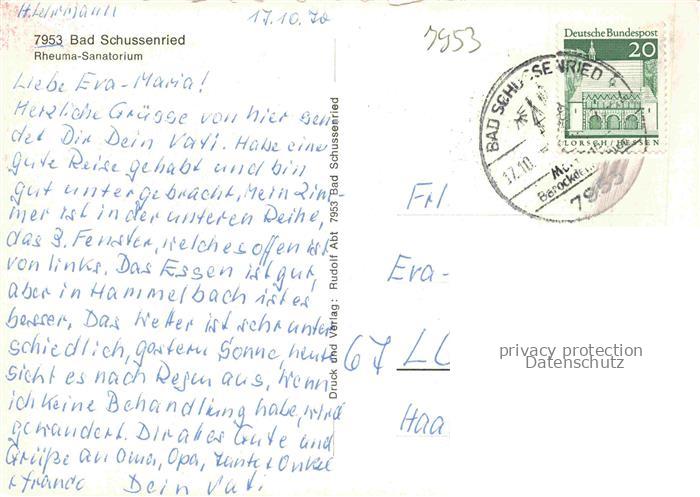 H. Lehrmann 17.10.70
7953 Bad Schussenried
Rheuma-Sanatorium
7953
Deutsche Bundespost
20
LORSCH/HESSEN
BAD SCHUSSENRIED
17.10.
7953
Liebe Eva-Maria!
Herzliche Grüsse von hier sen
det Dir Dein Vati. Habe eine
gute Reise gehabt und bin
gut untergebracht, Mein Zim
mer ist in der unteren Reihe,
das 3. Fenster, welches offen ist
von links. Das Essen ist gut,
aber in Hammelbach ist es
besser. Das Wetter ist sehr unter
schiedlich, gestern Sonne, heute
sieht es nach Regen aus, wenn
ich keine Behandlung habe, wird
gewandert. Dir alles Gute und
Grüße an Oma, Opa, Tante + Onkel
+ Franco Dein Vati
Druck und Verlag: Rudolf Abt 7953 Bad Schussenried
Frl
Eva-
67 LU
Haa
privacy protection
Datenschutz